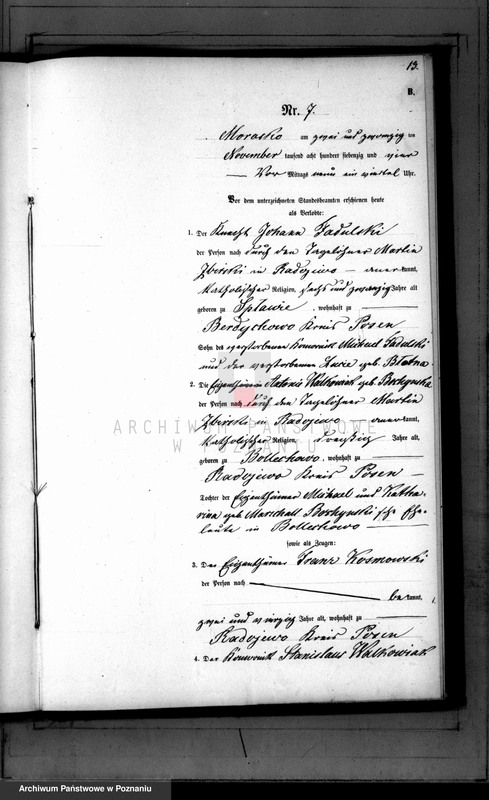 13.
B.
Nr. 7.
Morasko am zwei und zwanzig ten
November tausend acht hundert siebenzig und vier
— Vor Mittags neun ein viertel Uhr.
Vor dem unterzeichneten Standesbeamten erschienen heute
als Verlobte:
1. Der Knecht Johann Gadulski
der Person nach durch den Tagelöhner Martin
Zbirski in Radojewo — anerkannt,
katholischer Religion, sechs und zwanzig Jahre alt
geboren zu Splawie, wohnhaft zu
Berdychowo Kreis Posen
Sohn des verstorbenen Komornik Michael Gadulski
und der verstorbenen Lucie geb. Blotna
2. Die Eigenthümerin Antonie Walkowiak geb. Borkynska
der Person nach durch den Tagelöhner Martin
Zbirski in Radojewo — anerkannt,
katholischer Religion, dreißig Jahre alt,
geboren zu Bollechowo, wohnhaft zu
Radojewo Kreis Posen —
Tochter der Eigenthümer Michael und Katha-
rina geb. Marschall Borkynski'sche Ehe-
leute in Bollechowo
sowie als Zeugen:
3. Der Eigenthümer Franz Kosmowski
der Person nach
bekannt,
zwei und vierzig Jahre alt, wohnhaft zu
Radojewo Kreis Posen
4. Der Komornik Stanislaus Walkowiak
ARCHIWUM PAŃSTWOWE
W POZNANIU
Archiwum Państwowe w Poznaniu
Archiwum Państwowe w Poznaniu